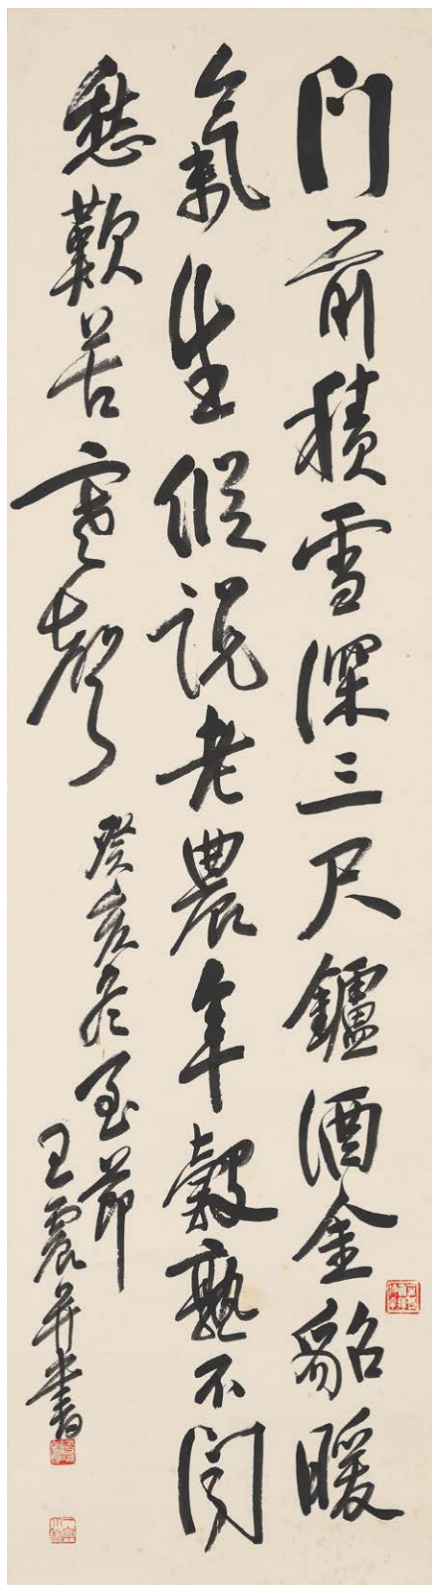 門前積雪深三尺鑪酒金貂暖
氣生說老農年穀熟不聞
愁歎苦寒聲
癸亥冬至節
王震并書